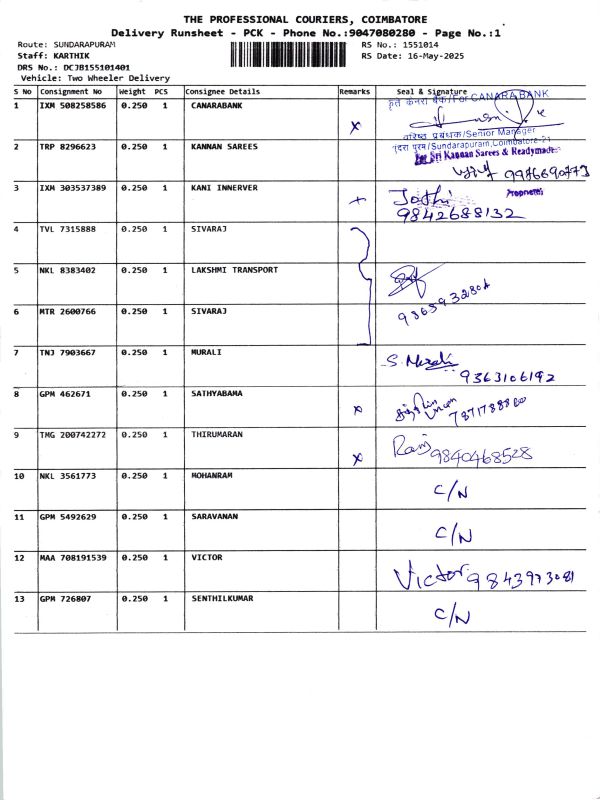 THE PROFESSIONAL COURIERS, COIMBATORE
Delivery Runsheet - PCK - Phone No.:9047080280 - Page No.:1
Route: SUNDARAPURAM RS No.: 1551014
Staff: KARTHIK RS Date: 16-May-2025
DRS No.: DCJB155101401
Vehicle: Two Wheeler Delivery
S No Consignment No Weight PCS Consignee Details Remarks Seal & Signature
1 IXM 508258586 0.250 1 CANARABANK x कृते केनरा बैंक/For CANARA BANK
वरिष्ठ प्रबंधक/Senior Manager
Sundarapuram, Coimbatore-21
2 TRP 8296623 0.250 1 KANNAN SAREES For Sri Kannan Sarees & Readymades
9976690773
Proprietor
3 IXM 303537389 0.250 1 KANI INNERVER + Jothi
9842688132
4 TVL 7315888 0.250 1 SIVARAJ
5 NKL 8383402 0.250 1 LAKSHMI TRANSPORT
6 MTR 2600766 0.250 1 SIVARAJ 9865932804
7 TNJ 7903667 0.250 1 MURALI S. Murali
9363106192
8 GPM 462671 0.250 1 SATHYABAMA x 7871788860
9 TMG 200742272 0.250 1 THIRUMARAN x Ravi 9840468528
10 NKL 3561773 0.250 1 MOHANRAM C/N
11 GPM 5492629 0.250 1 SARAVANAN C/N
12 MAA 708191539 0.250 1 VICTOR Victor 9843973081
13 GPM 726807 0.250 1 SENTHILKUMAR C/N